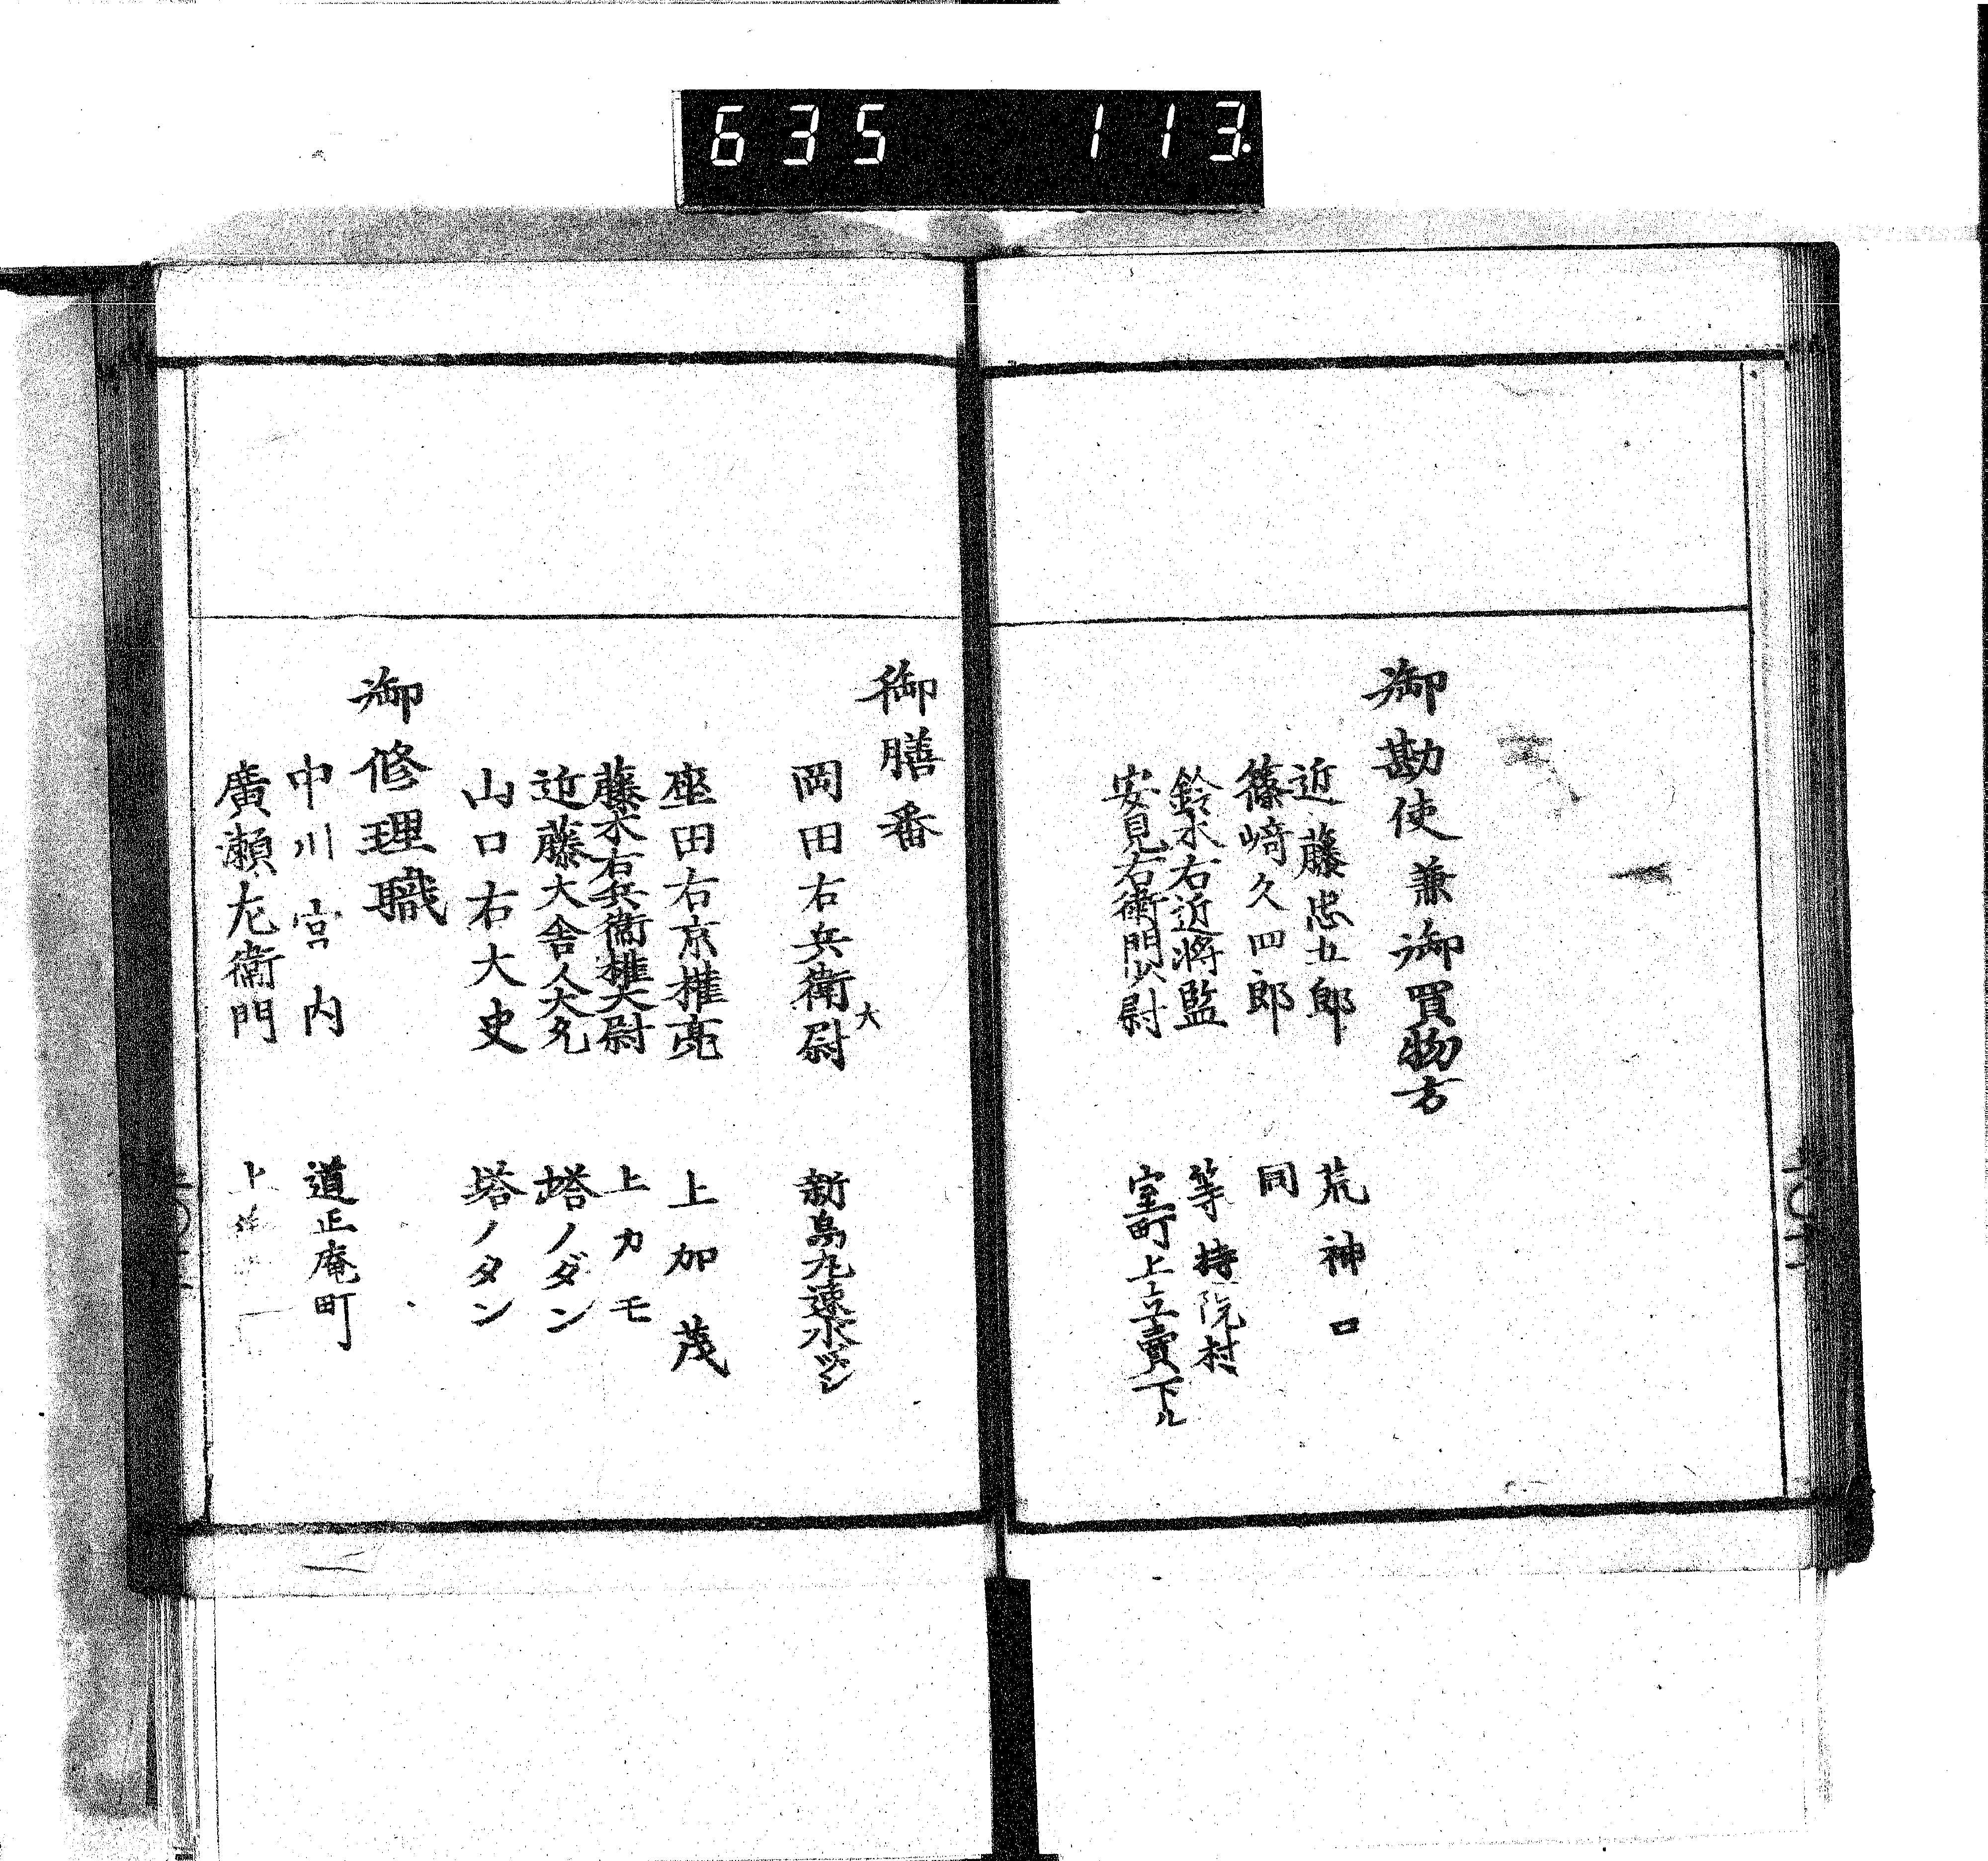 635 113.
御勘使兼御買物方
近藤忠五郎 荒神口
篠﨑久四郎 同
鈴木右近將監 等持院村
安見右衛門少尉 室町上立賣下ル
御膳番
岡田右兵衛大尉 新烏丸速水ズシ
座田右京權亮 上加茂
藤木右兵衛權大尉 上カモ
近藤大舍人大允 塔ノダン
山口右大史 塔ノタン
御修理職
中川宮内 道正庵町
廣瀬左衛門 上